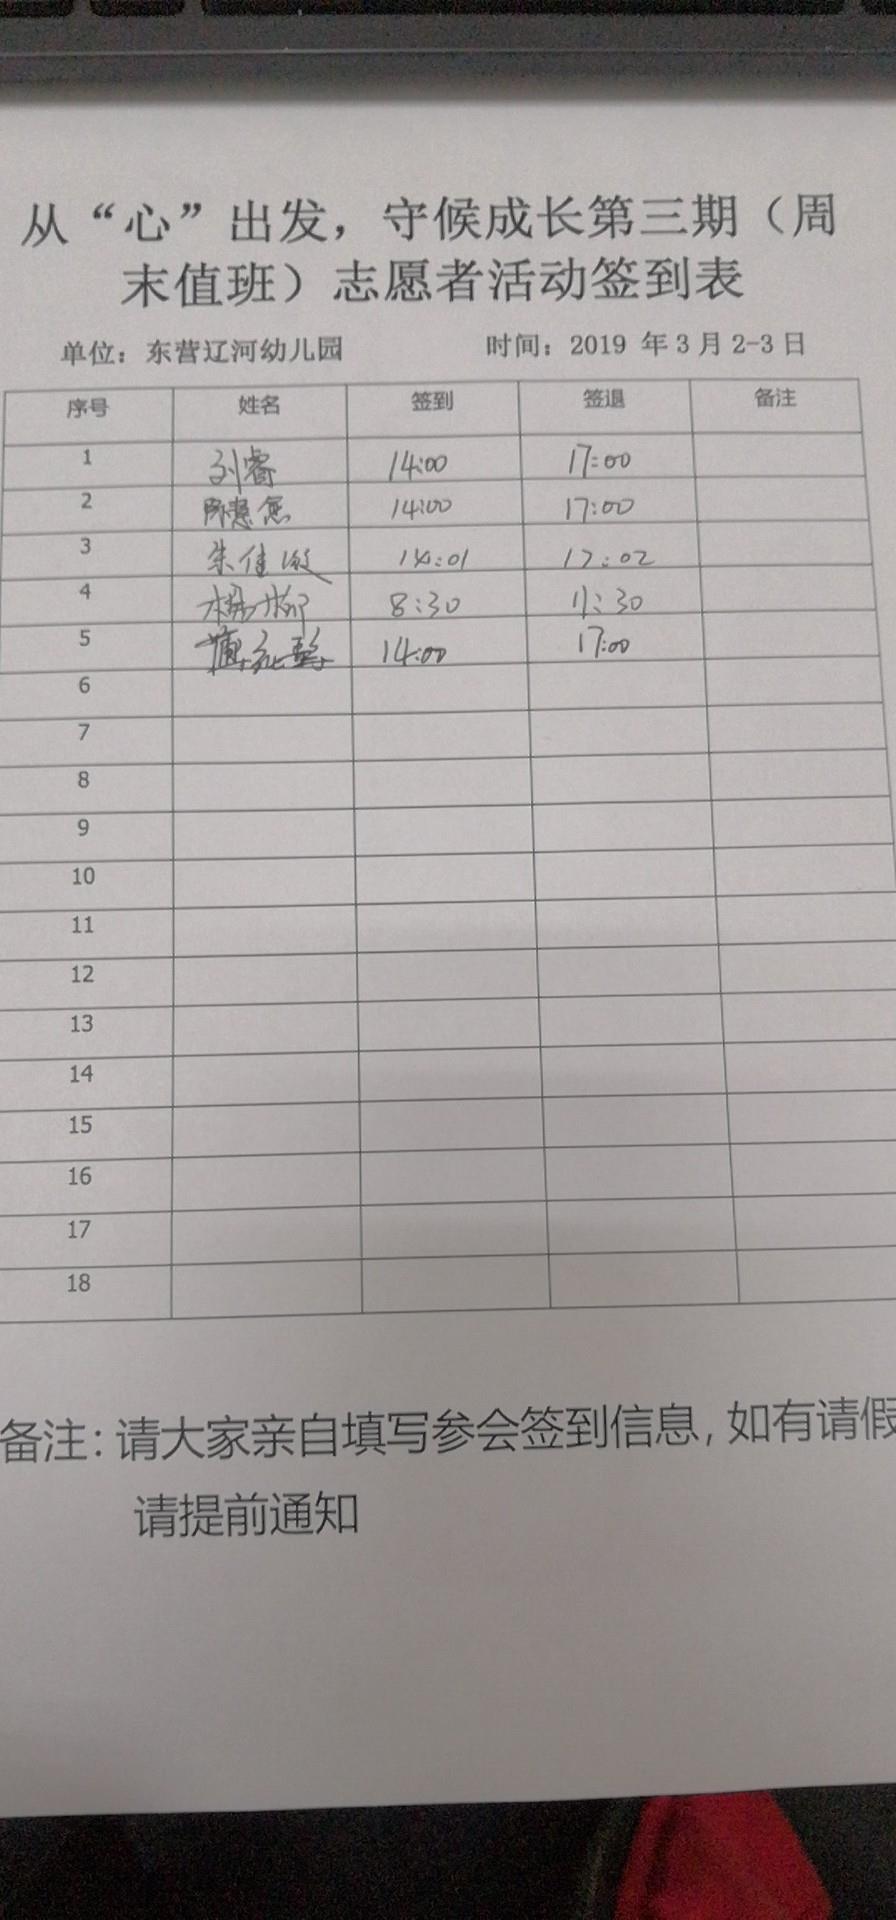 从“心”出发，守候成长第三期（周
末值班）志愿者活动签到表
单位：东营辽河幼儿园 时间：2019 年 3 月 2-3 日
序号 姓名 签到 签退 备注
1 刘睿 14:00 17:00
2 14:00 17:00
3 朱佳 14:01 17:02
4 杨柳 8:30 11:30
5 14:00 17:00
6
7
8
9
10
11
12
13
14
15
16
17
18
备注：请大家亲自填写参会签到信息，如有请假
请提前通知